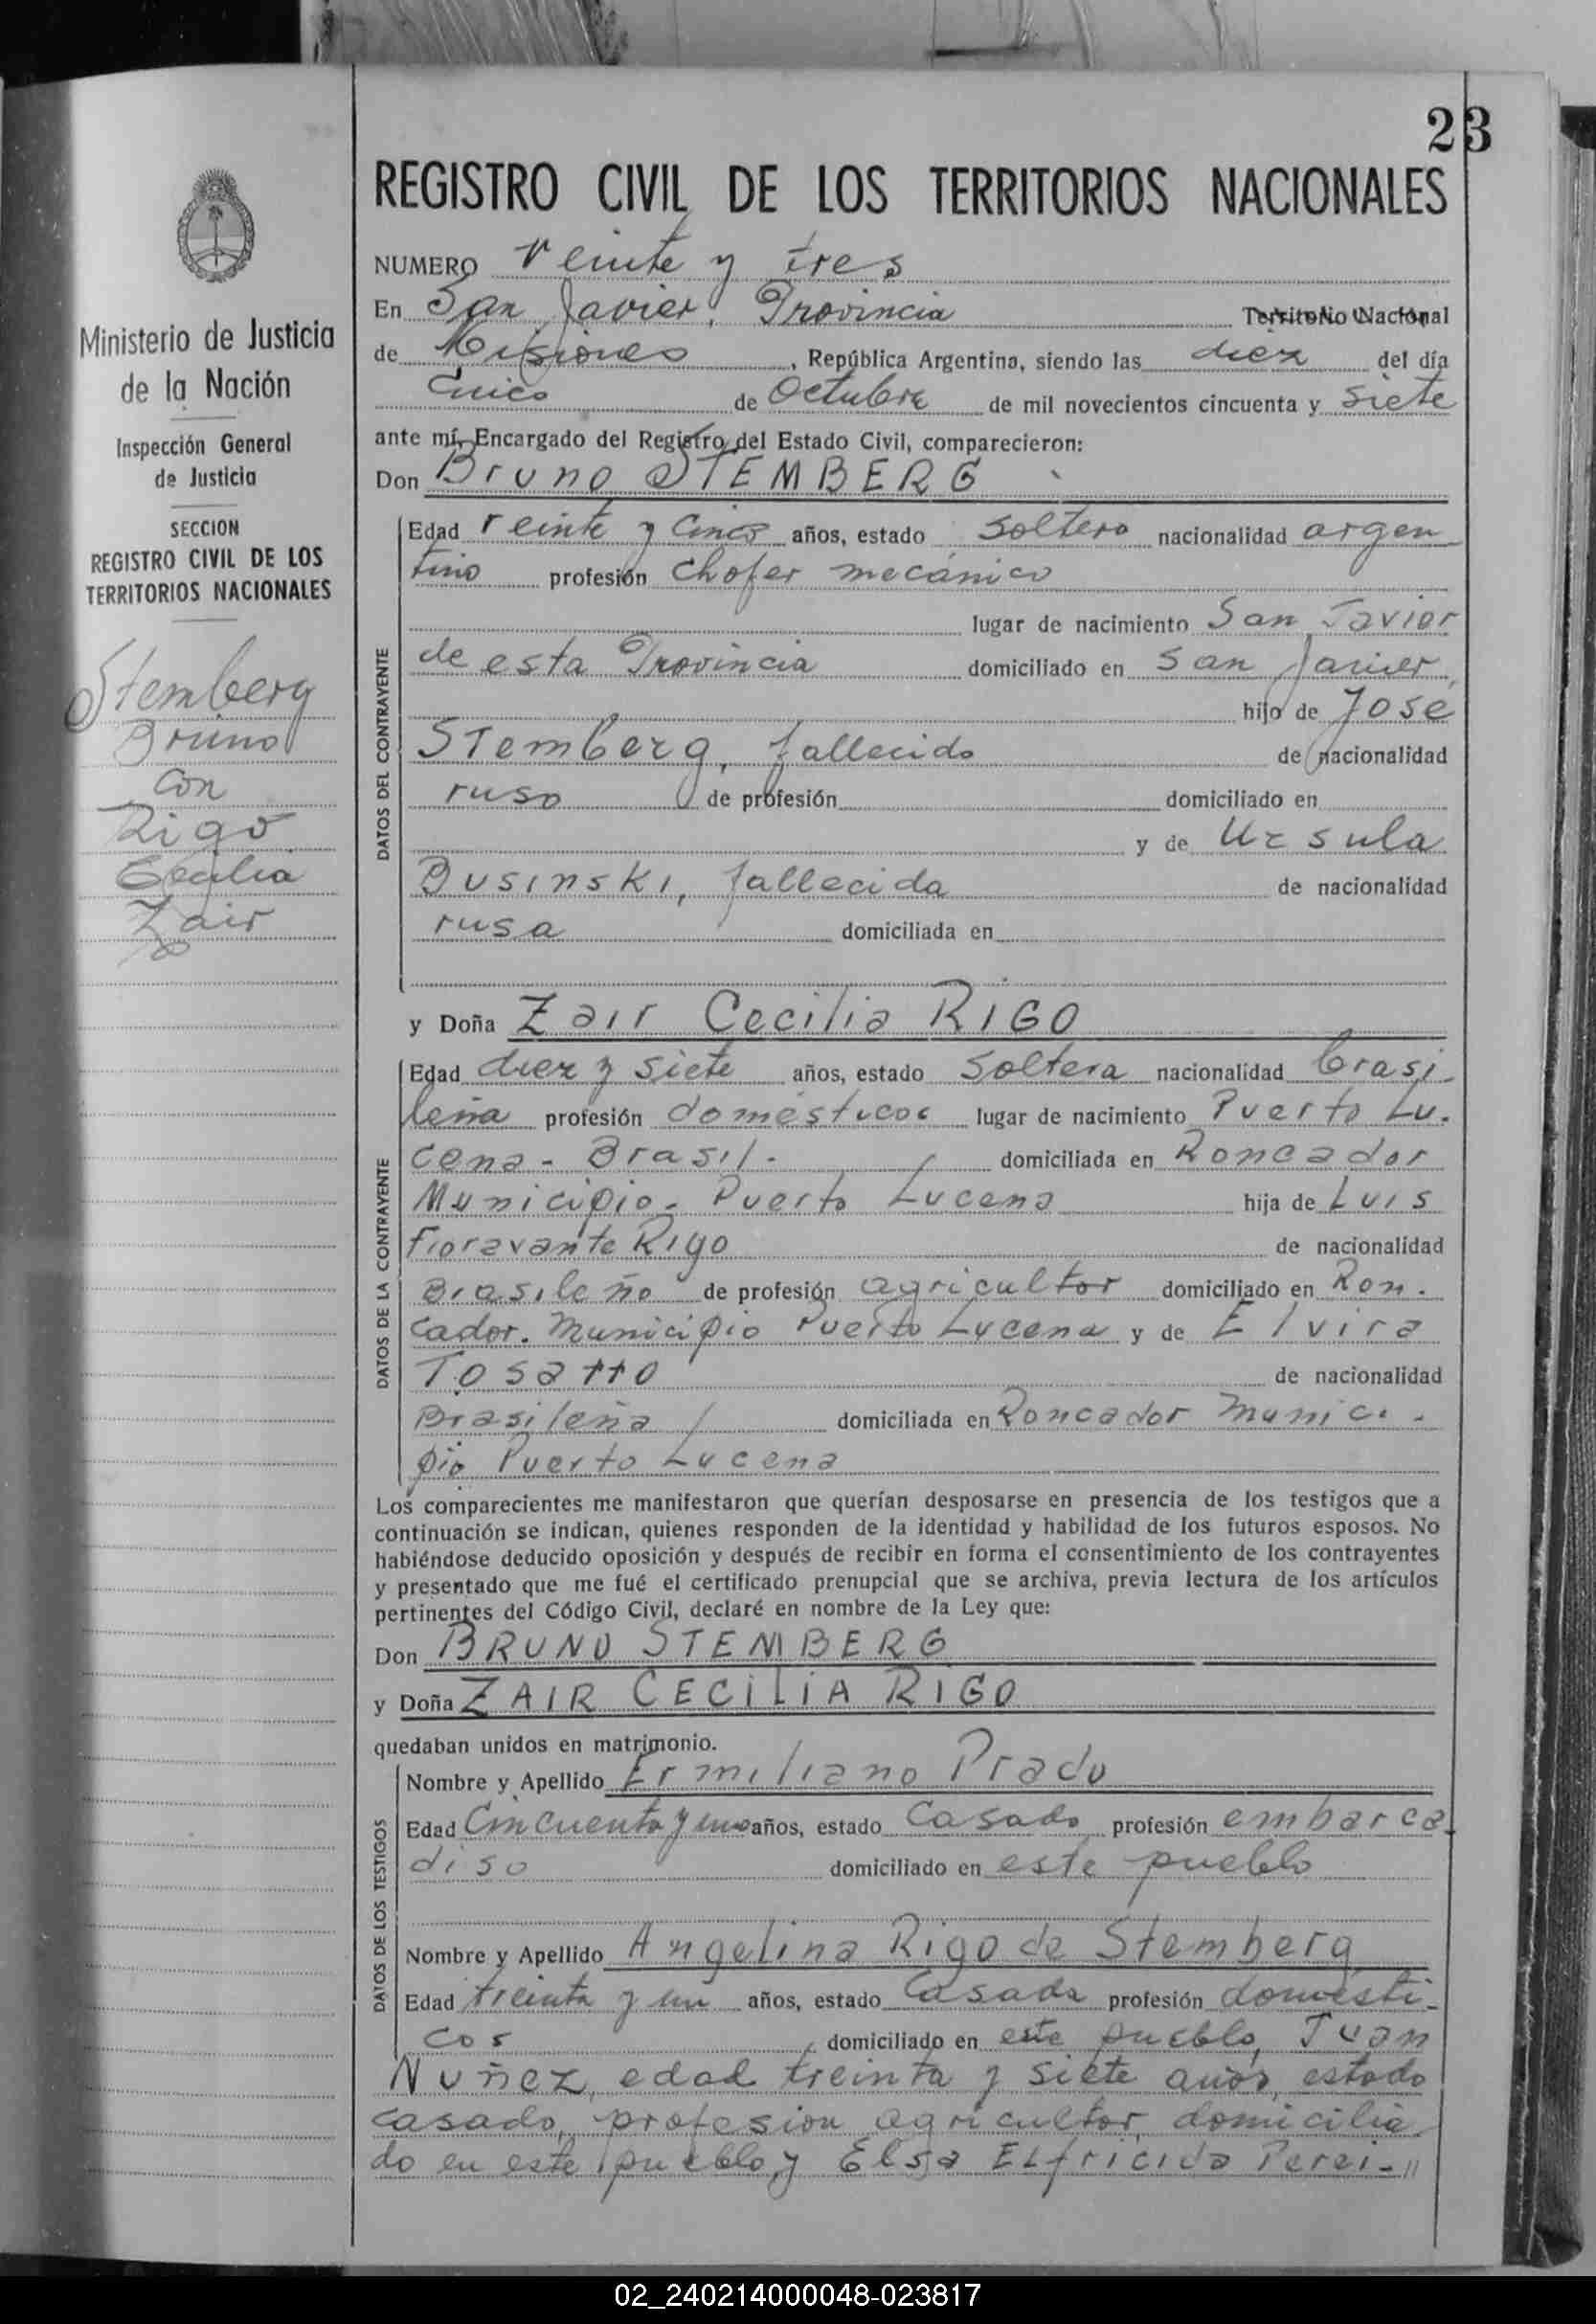 23
REGISTRO CIVIL DE LOS TERRITORIOS NACIONALES
Ministerio de Justicia
de la Nación
Inspección General
de Justicia
SECCION
REGISTRO CIVIL DE LOS
TERRITORIOS NACIONALES
Stemberg
Bruno
con
Rigo
Cecilia
Zair
NUMERO Veinte y tres
En San Javier, Provincia Territorio Nacional
de Misiones, República Argentina, siendo las diez del día
Cinco de Octubre de mil novecientos cincuenta y siete
ante mí, Encargado del Registro del Estado Civil, comparecieron:
Don Bruno STEMBERG
DATOS DEL CONTRAYENTE
Edad veinte y cinco años, estado soltero nacionalidad argen
tino profesión chofer mecánico
lugar de nacimiento San Javier
de esta Provincia domiciliado en San Javier,
hijo de José
Stemberg, fallecido de nacionalidad
ruso de profesión domiciliado en
y de Ursula
Businski, fallecida de nacionalidad
rusa domiciliada en
y Doña Zair Cecilia RIGO
DATOS DE LA CONTRAYENTE
Edad diez y siete años, estado Soltera nacionalidad brasi
leña profesión domésticos lugar de nacimiento Puerto Lu-
cena - Brasil - domiciliada en Roncador
Municipio - Puerto Lucena hija de Luis
Fioravante Rigo de nacionalidad
Brasileño de profesión agricultor domiciliado en Ron-
cador. Municipio Puerto Lucena y de Elvira
Tosatto de nacionalidad
Brasileña domiciliada en Roncador Munici-
pio Puerto Lucena
Los comparecientes me manifestaron que querían desposarse en presencia de los testigos que a
continuación se indican, quienes responden de la identidad y habilidad de los futuros esposos. No
habiéndose deducido oposición y después de recibir en forma el consentimiento de los contrayentes
y presentado que me fué el certificado prenupcial que se archiva, previa lectura de los artículos
pertinentes del Código Civil, declaré en nombre de la Ley que:
Don BRUNO STEMBERG
y Doña ZAIR CECILIA RIGO
quedaban unidos en matrimonio.
DATOS DE LOS TESTIGOS
Nombre y Apellido Ermiliano Prado
Edad Cincuenta y uno años, estado Casado profesión embarca
diso domiciliado en este pueblo
Nombre y Apellido Angelina Rigo de Stemberg
Edad treinta y un años, estado Casada profesión domésti-
cos, domiciliado en este pueblo, Juan
Nuñez, edad treinta y siete años, estado
casado, profesion agricultor, domicilia
do en este pueblo, y Elsa Elfricida Perei-"
02_240214000048-023817